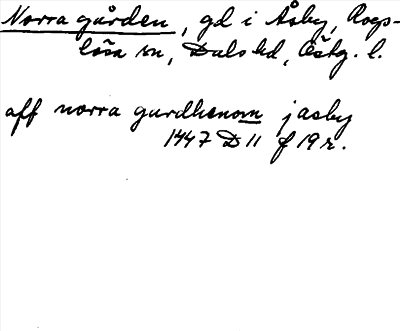 Norra gården, gd i Åsby, Rogs-
lösa sn, Dals hd, Östg. l.
aff norra gardhenom j asby
1447 D 11 f 19 r.